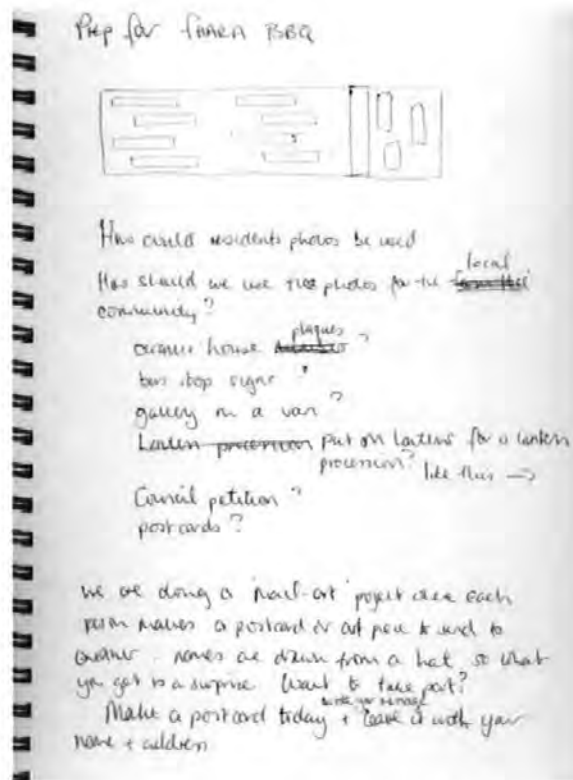 Prep for FHARA BBQ
How could residents photos be used
How should we use these photos for the local
community?
ceramic house plaques ?
bus stop signs ?
gallery in a van ?
Lantern procession put on lanterns for a lantern
procession? like this →
Council petition ?
postcards ?
we are doing a 'mail-art' project where each
person makes a postcard or art piece to send to
another - names are drawn from a hat, so what
you get is a surprise. Want to take part?
write your message
Make a postcard today + leave it with your
name + address